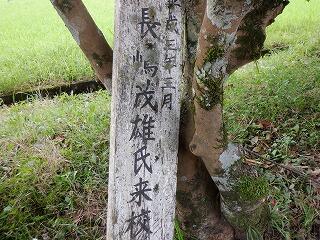 平成三年十二月
長嶋茂雄氏来校